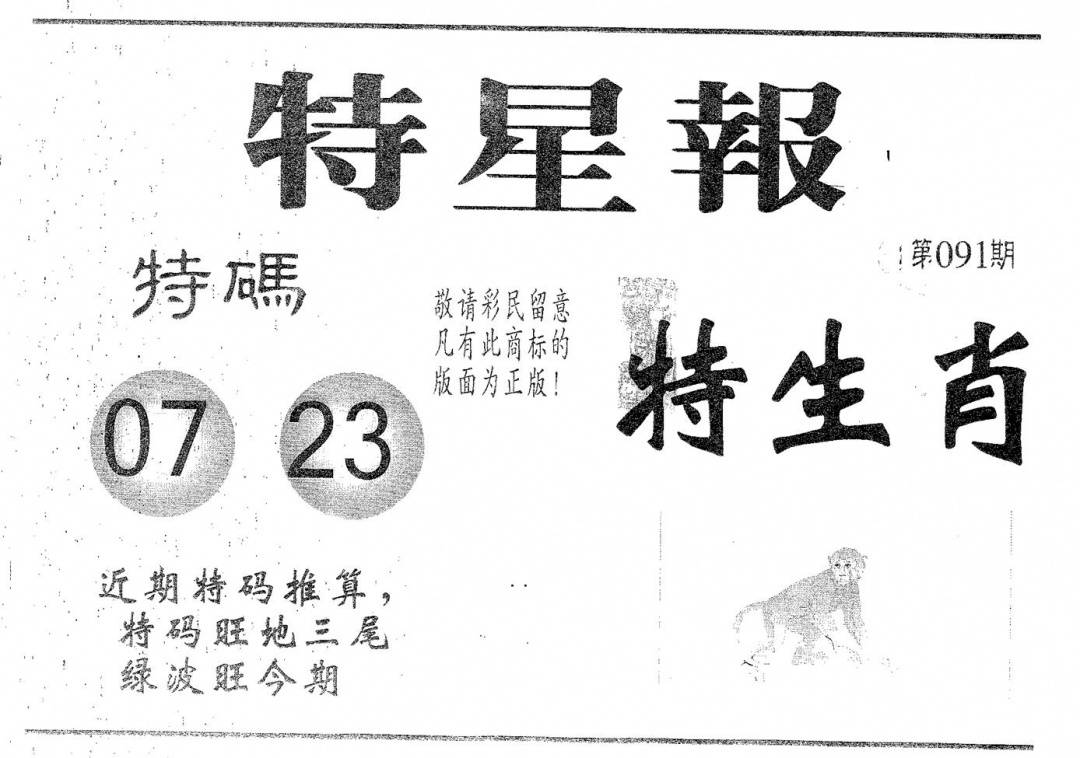 特星報
第091期
特碼
敬请彩民留意
凡有此商标的
版面为正版！
特生肖
07 23
近期特码推算，
特码旺地三尾
绿波旺今期